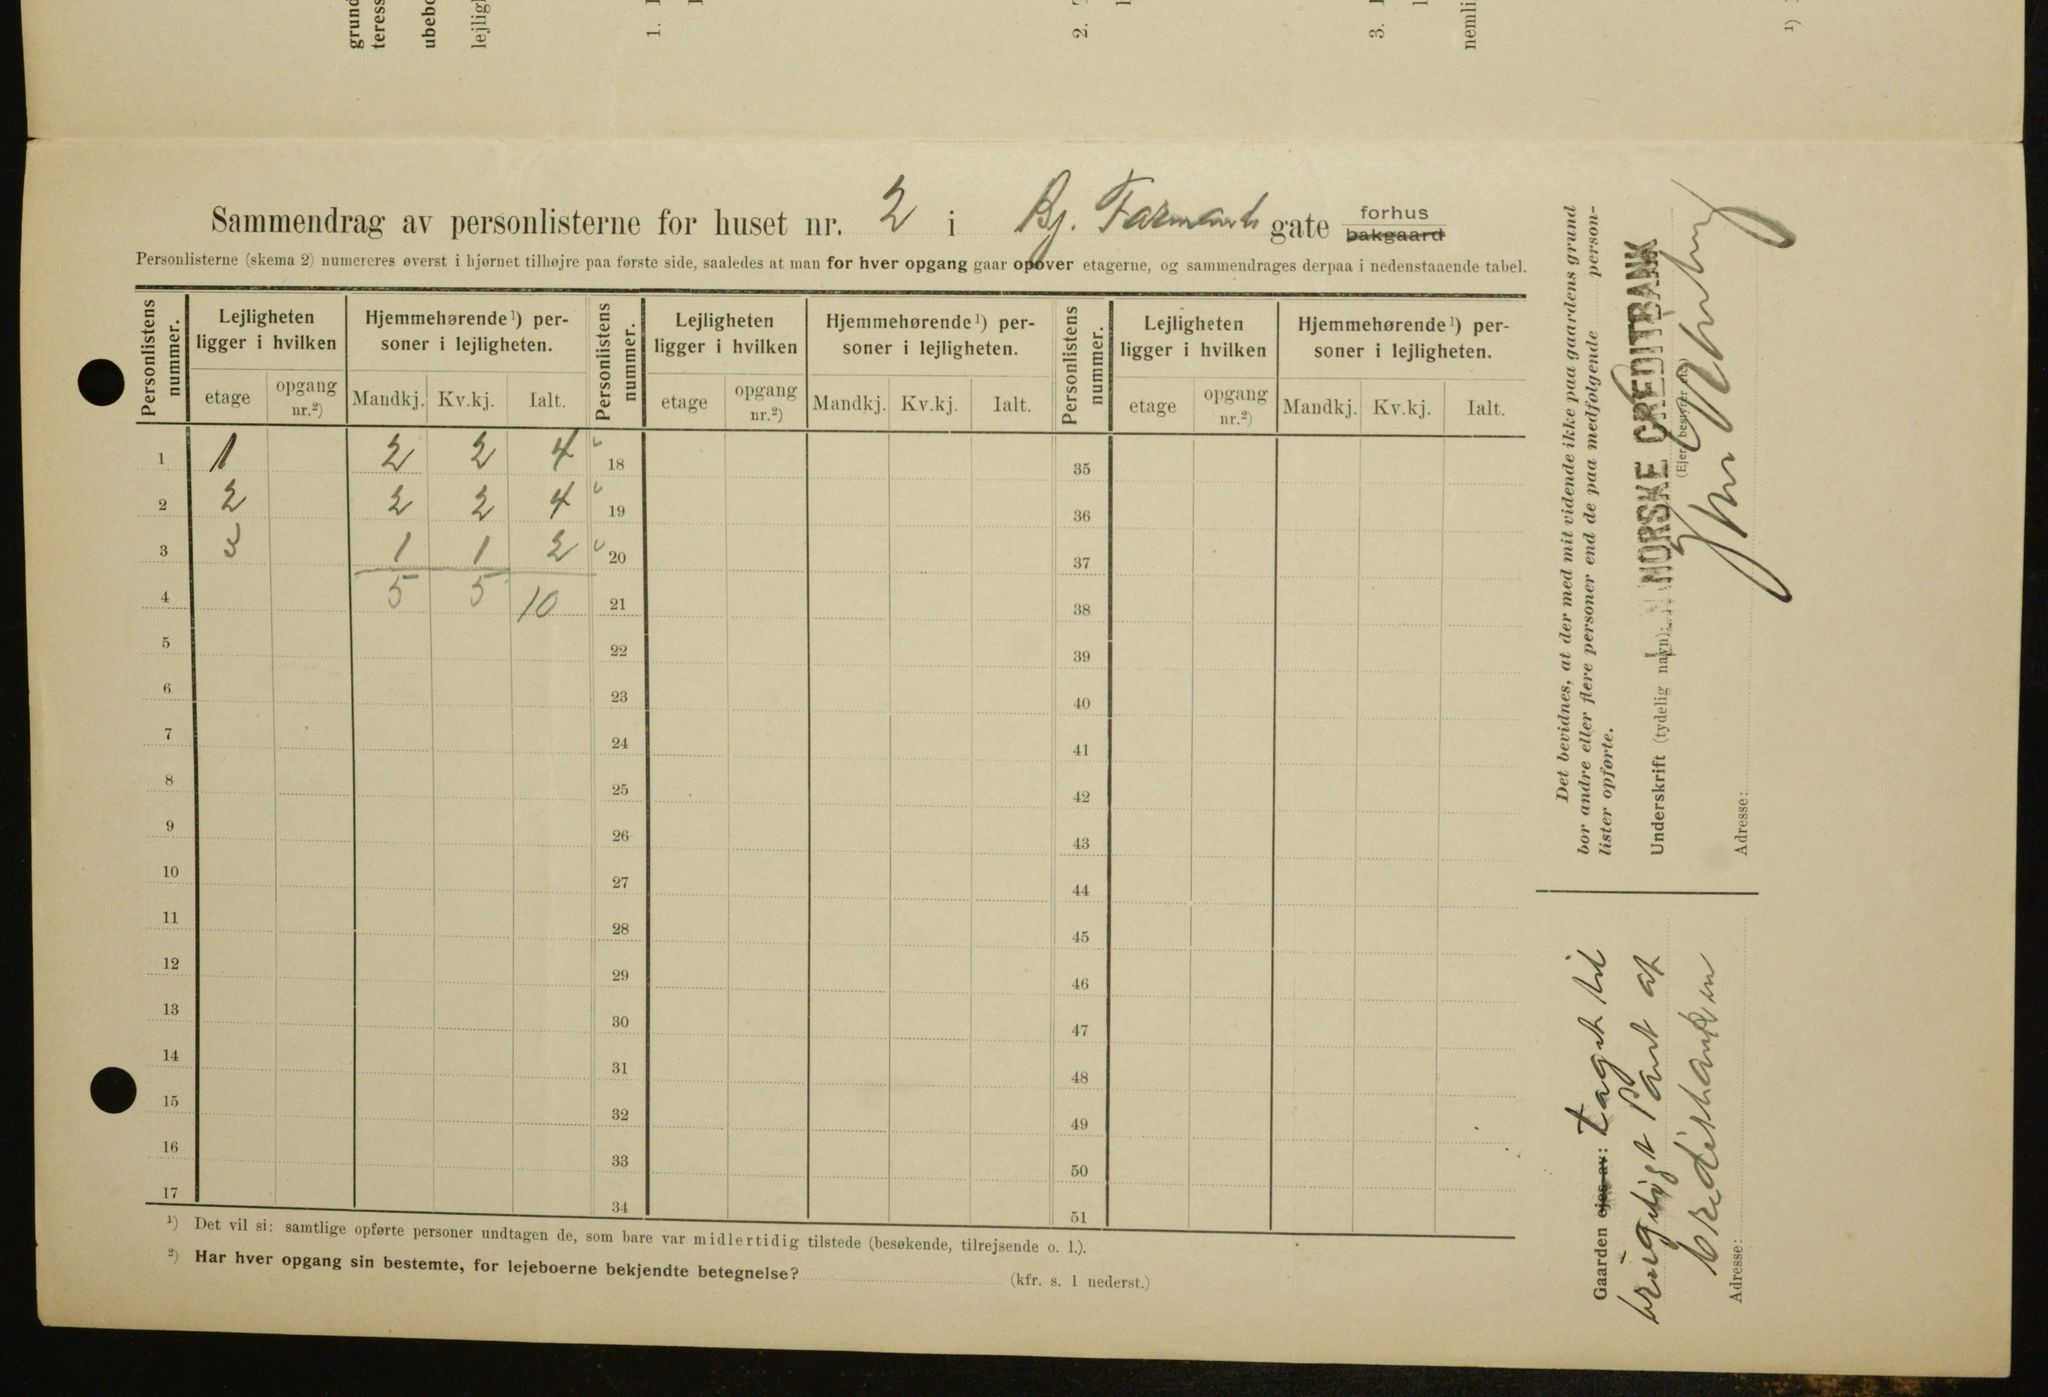 Sammendrag av personlisterne for huset nr. 2 i Bj. Farmands gate forhus bakgaard
Personlisterne (skema 2) numereres øverst i hjørnet tilhøjre paa første side, saaledes at man for hver opgang gaar opover etagerne, og sammendrages derpaa i nedenstaaende tabel.
Personlistens nummer. Lejligheten ligger i hvilken Hjemmehørende ¹) personer i lejligheten. Personlistens nummer. Lejligheten ligger i hvilken Hjemmehørende ¹) personer i lejligheten. Personlistens nummer. Lejligheten ligger i hvilken Hjemmehørende ¹) personer i lejligheten.
etage opgang nr.²) Mandkj. Kv.kj. Ialt. etage opgang nr.²) Mandkj. Kv.kj. Ialt. etage opgang nr.²) Mandkj. Kv.kj. Ialt.
1 1 2 2 4 18 35
2 2 2 2 4 19 36
3 3 1 1 2 20 37
4 5 5 10 21 38
5 22 39
6 23 40
7 24 41
8 25 42
9 26 43
10 27 44
11 28 45
12 29 46
13 30 47
14 31 48
15 32 49
16 33 50
17 34 51
¹) Det vil si: samtlige opførte personer undtagen de, som bare var midlertidig tilstede (besøkende, tilrejsende o. l.).
²) Har hver opgang sin bestemte, for lejeboerne bekjendte betegnelse? (kfr. s. 1 nederst.)
Det bevidnes, at der med mit vidende ikke paa gaardens grund
bor andre eller flere personer end de paa medfølgende person-
lister opførte.
Underskrift (tydelig navn): NORSKE CREDITBANK
Adresse:
Gaarden ejes av: taget til
brugeligt Pant af
Creditbanken
Adresse:
grund
teress
ubebo
lejligh
1.
2.
3.
nemli
¹)